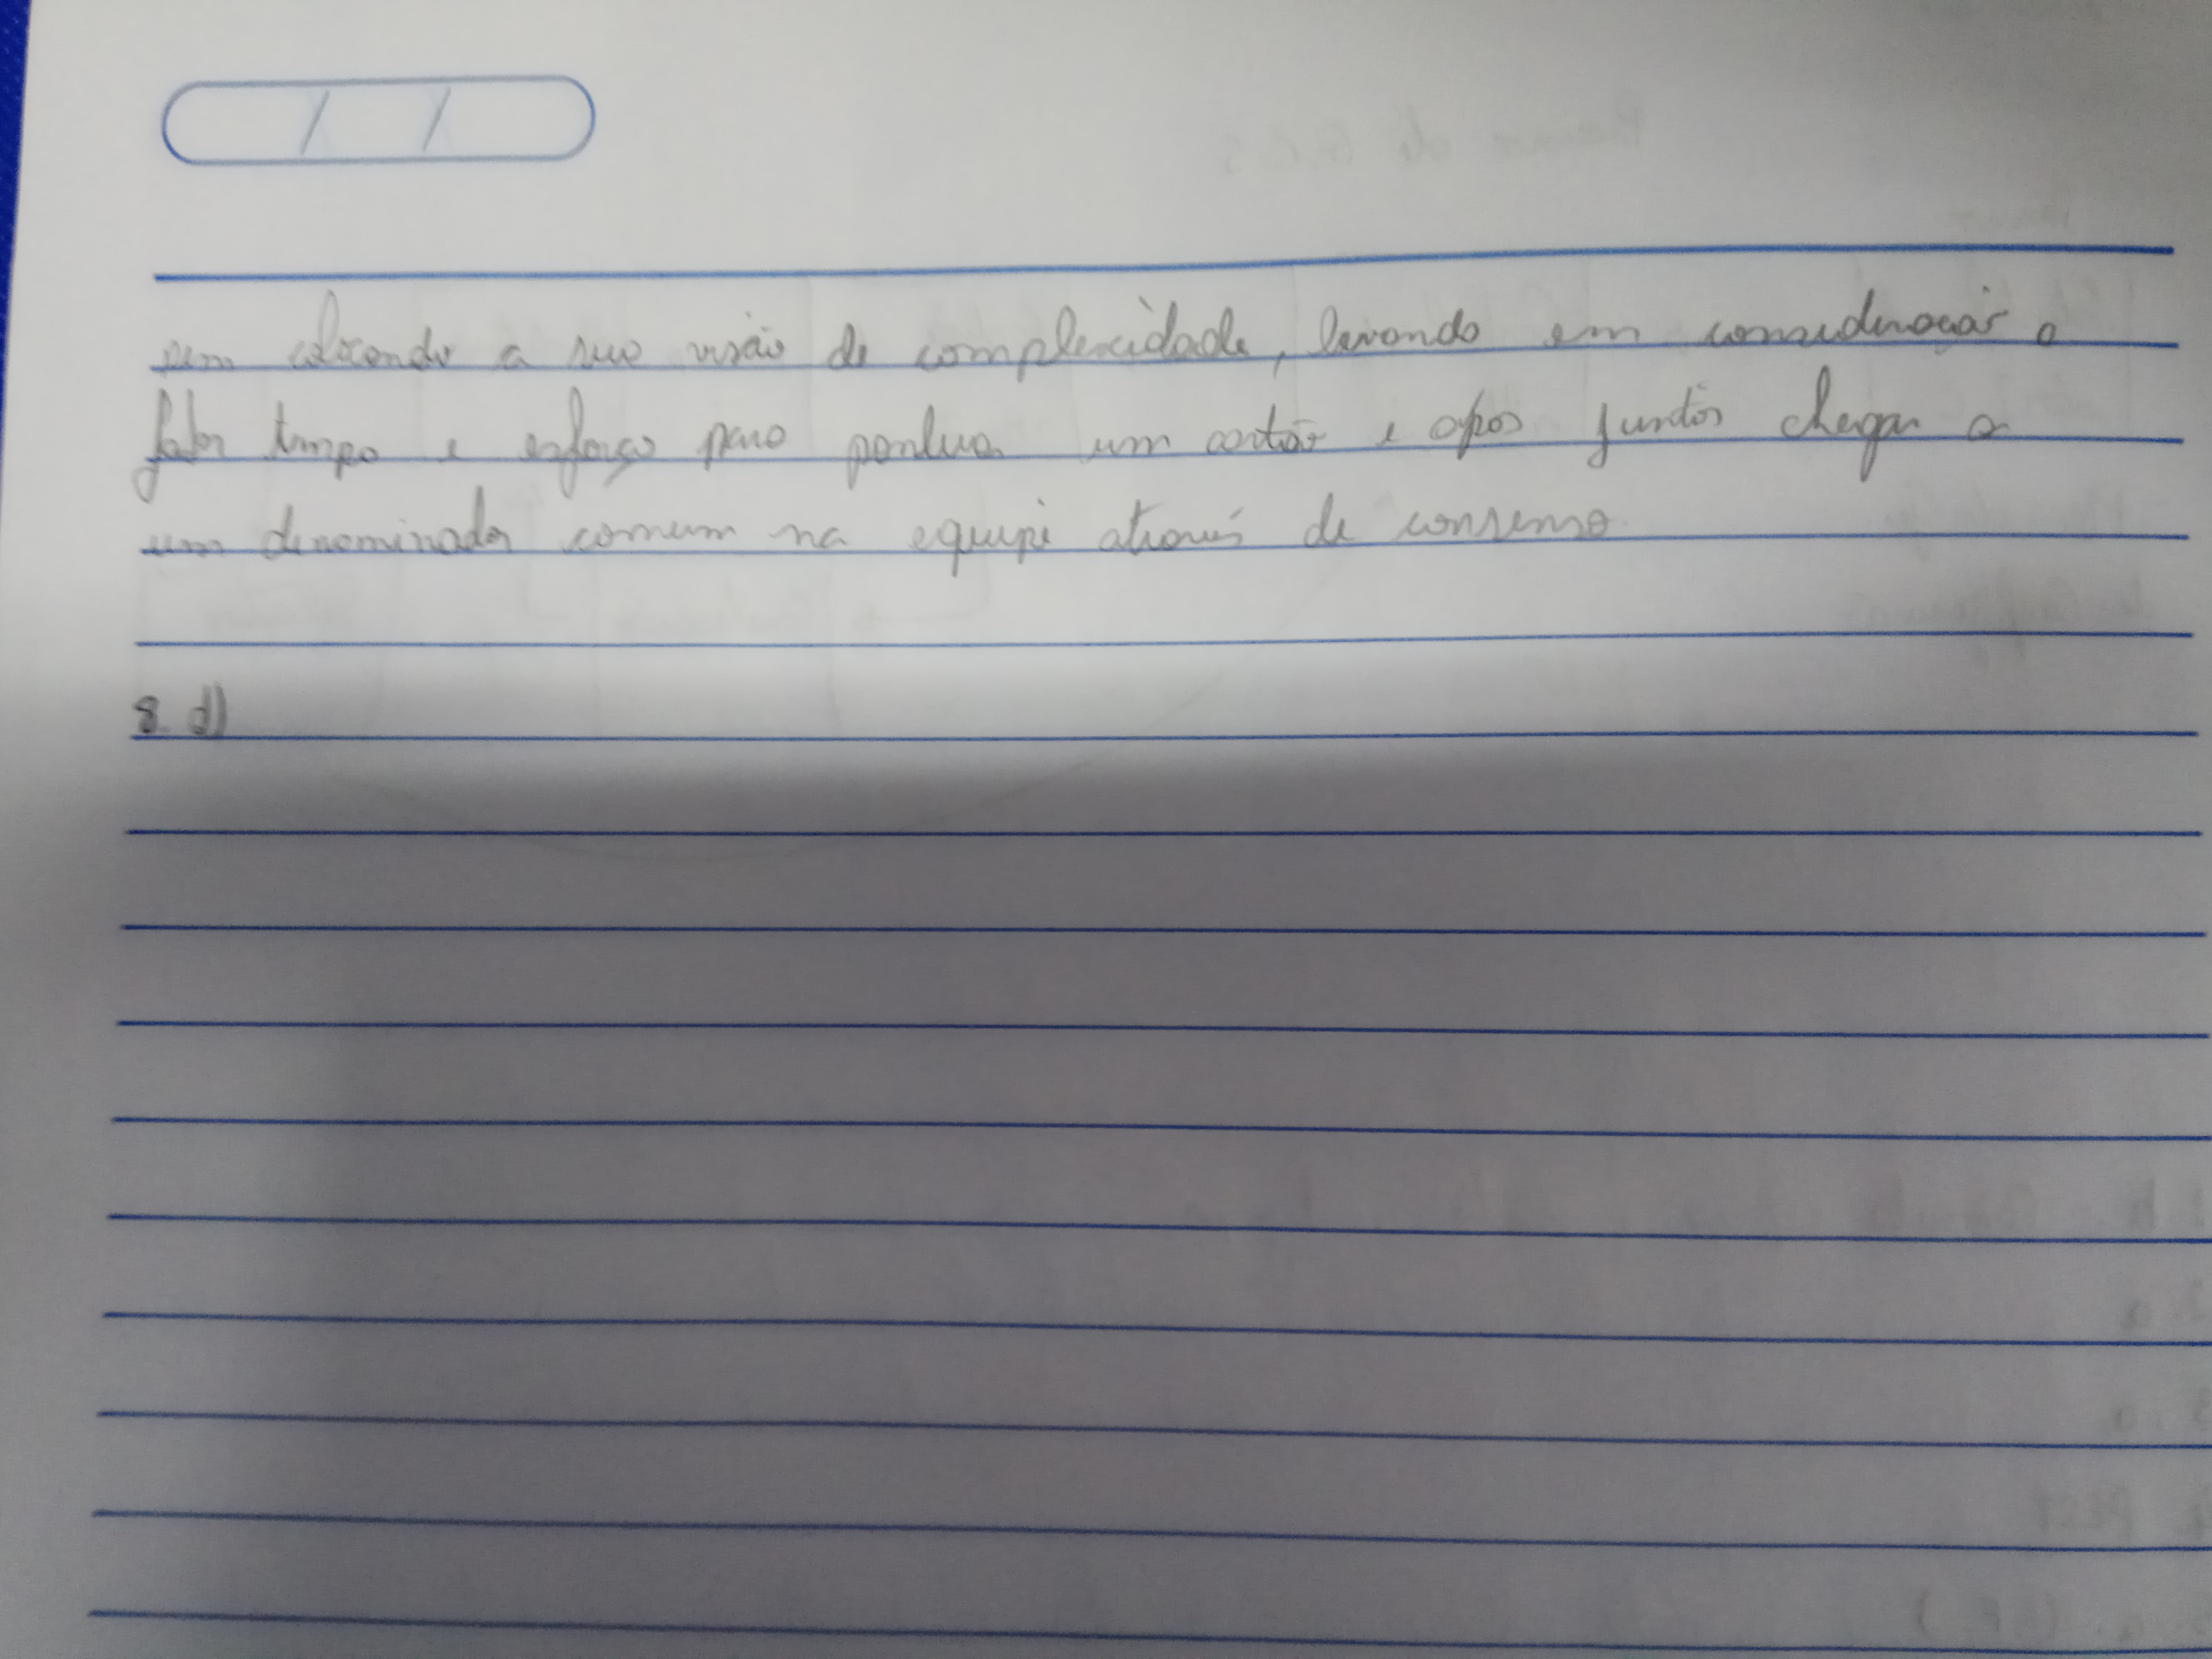 colocando a sua visão de complexidade, levando em consideração o
fator tempo e esforço para pontuar um cartão e apos juntos chegar a
um denominador comum na equipe através de consenso.
8. d)